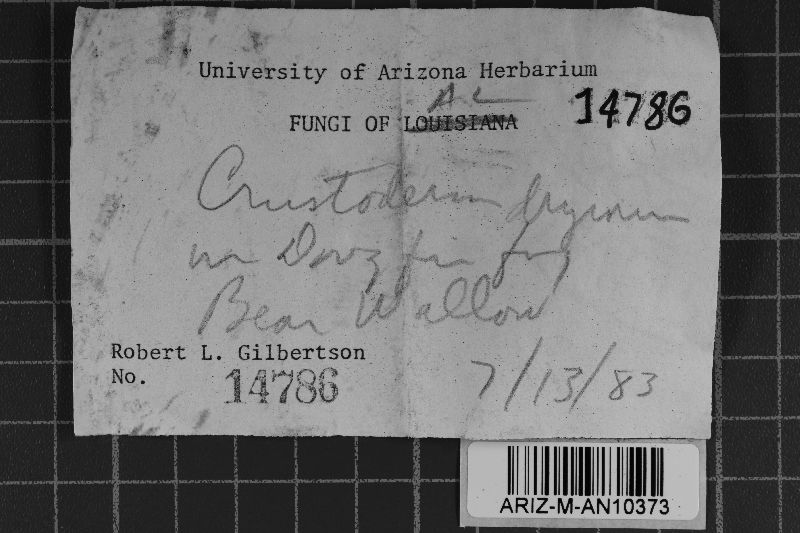 University of Arizona Herbarium
FUNGI OF LOUISIANA
14786
Crustoderma dryinum
on Doug fir log
Bear Wallow
Robert L. Gilbertson
No. 14786
7/13/83
ARIZ-M-AN10373